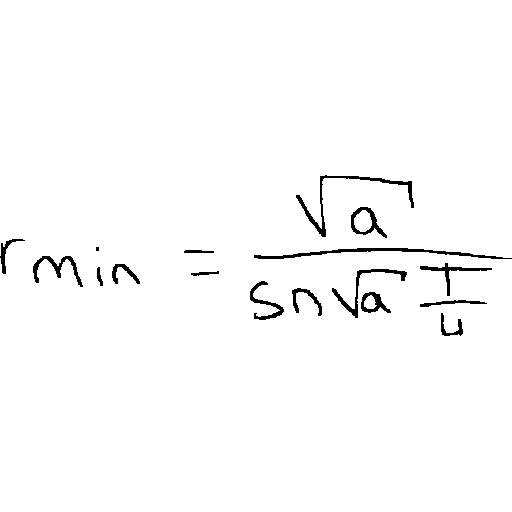 r_{min} = \frac{\sqrt{a}}{sn\sqrt{a}\frac{T}{4}}